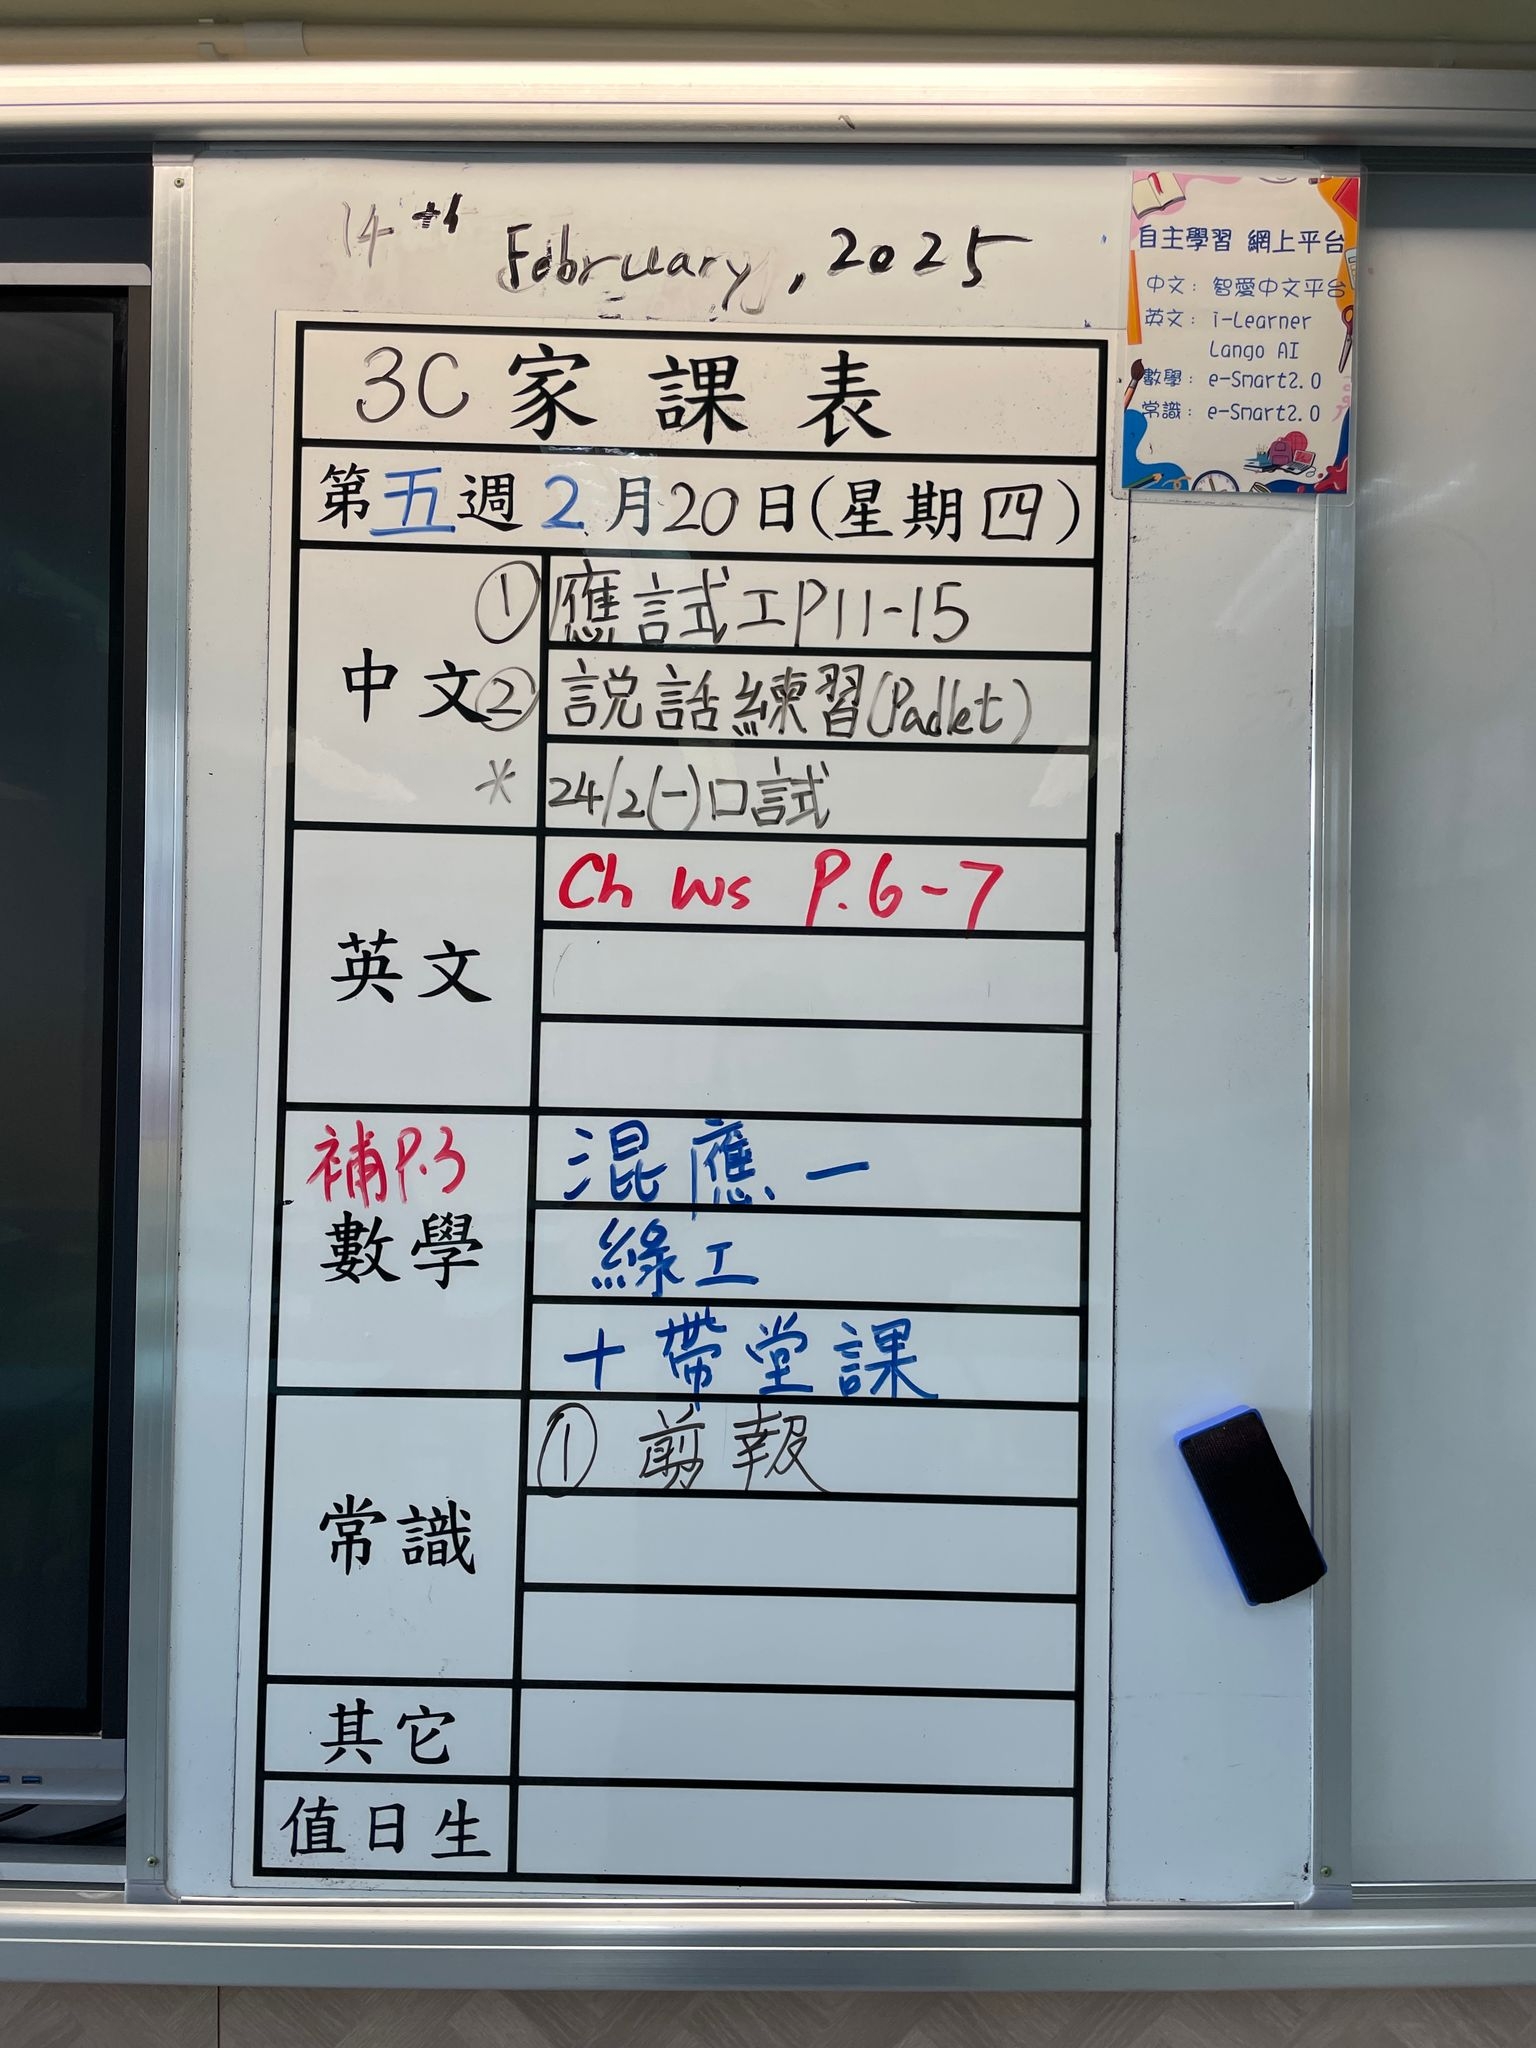 14th February, 2025
自主學習 網上平台
中文: 智愛中文平台
英文: i-Learner
Lango AI
數學: e-Smart2.0
常識: e-Smart2.0
3C 家課表
第五週2月20日(星期四)
中文
① 應試工P11-15
② 説話練習(Padlet)
* 24/2(一)口試
英文
Ch Ws P.6-7
補P.3
數學
混應一
綠工
+ 帶堂課
常識
① 剪報
其它
值日生